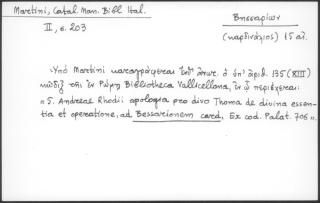 Martini, Catal. Man. Bibl. Ital.
II, σ. 203
Βησσαρίων
(καρδινάλιος) 15 αἰ.
Ὑπὸ Martini καταγράφεται ὁ ὑπ' ἀριθ. 135 (XIII)
κῶδιξ τῆς ἐν Ρώμῃ Bibliotheca Vallicellana, ἐν ᾧ περιέχεται:
«S. Andreae Rhodii apologia pro divo Thoma de divina essen-
tia et operatione, ad Bessarionem card. Ex cod. Palat. 706».